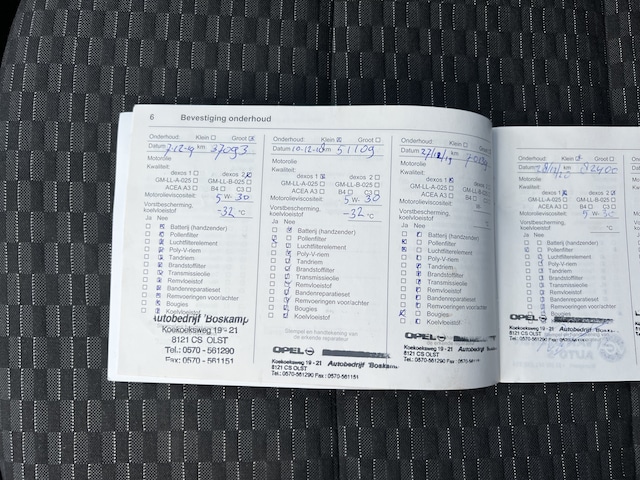 6 Bevestiging onderhoud
Onderhoud: Klein Groot
Datum 7-12-17 km 37093
Motorolie
Kwaliteit:
dexos 1 dexos 2
GM-LL-A-025 GM-LL-B-025
ACEA A3 B4 C3
Motorolieviscositeit: 5 W- 30
Vorstbescherming,
koelvloeistof -32 °C
Ja Nee
Batterij (handzender)
Pollenfilter
Luchtfilterelement
Poly-V-riem
Tandriem
Brandstoffilter
Transmissieolie
Remvloeistof
Bandenreparatieset
Remvoeringen voor/achter
Bougies
Koelvloeistof
Autobedrijf 'Boskamp
Koekoeksweg 19 - 21
8121 CS OLST
Tel.: 0570 - 561290
Fax: 0570 - 561151
Onderhoud: Klein Groot
Datum 10-12-18 km 51109
Motorolie
Kwaliteit:
dexos 1 dexos 2
GM-LL-A-025 GM-LL-B-025
ACEA A3 B4 C3
Motorolieviscositeit: 5 W- 30
Vorstbescherming,
koelvloeistof -32 °C
Ja Nee
Batterij (handzender)
Pollenfilter
Luchtfilterelement
Poly-V-riem
Tandriem
Brandstoffilter
Transmissieolie
Remvloeistof
Bandenreparatieset
Remvoeringen voor/achter
Bougies
Koelvloeistof
Stempel en handtekening van
de erkende reparateur
OPEL
Koekoeksweg 19 - 21 Autobedrijf 'Boskamp
8121 CS OLST
Tel.: 0570-561290 Fax: 0570-561151
Onderhoud: Klein Groot
Datum 27/12/19 km
Motorolie
Kwaliteit:
dexos 1 dexos 2
GM-LL-A-025 GM-LL-B-025
ACEA A3 B4 C3
Motorolieviscositeit: 5 W- 30
Vorstbescherming,
koelvloeistof -32 °C
Ja Nee
Batterij (handzender)
Pollenfilter
Luchtfilterelement
Poly-V-riem
Tandriem
Brandstoffilter
Transmissieolie
Remvloeistof
Bandenreparatieset
Remvoeringen voor/achter
Bougies
Koelvloeistof
OPEL
Koekoeksweg 19 - 21 Autobedrijf
8121 CS OLST
Tel.: 0570-561290 Fax: 0570-561151
Onderhoud: Klein Groot
Datum km 82400
Motorolie
Kwaliteit:
dexos 1 dexos 2
GM-LL-A-025 GM-LL-B-025
ACEA A3 B4 C3
Motorolieviscositeit: 5 W- 30
Vorstbescherming,
koelvloeistof °C
Ja Nee
Batterij (handzender)
Pollenfilter
Luchtfilterelement
Poly-V-riem
Tandriem
Brandstoffilter
Transmissieolie
Remvloeistof
Bandenreparatieset
Remvoeringen voor/achter
Bougies
Koelvloeistof
OPEL
Koekoeksweg 19 - 21
8121 CS OLST